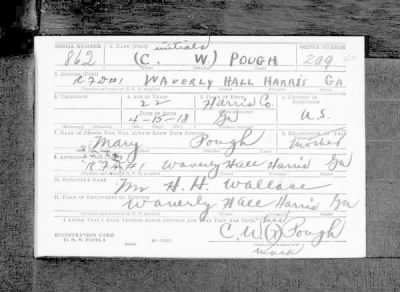 SERIAL NUMBER 1. NAME (Print) initials ORDER NUMBER
862 (C. W.) POUGH 209
2. ADDRESS (Print)
R.F.D #1 WAVERLY HALL HARRIS GA
3. TELEPHONE 4. AGE IN YEARS 5. PLACE OF BIRTH 6. COUNTRY OF CITIZENSHIP
22 Harris Co.
DATE OF BIRTH
4-15-18 Ga U.S.
7. NAME OF PERSON WHO WILL ALWAYS KNOW YOUR ADDRESS 8. RELATIONSHIP OF THAT PERSON
Mary Pough Mother
9. ADDRESS OF THAT PERSON
R.F.D #1 Waverly Hall Harris Ga
10. EMPLOYER'S NAME
Mr H. H. Wallace
11. PLACE OF EMPLOYMENT OR BUSINESS
Waverly Hall Harris Ga
I AFFIRM THAT I HAVE VERIFIED ABOVE ANSWERS AND THAT THEY ARE TRUE.
REGISTRATION CARD
D. S. S. Form 1
C. W. (X) Pough
his
mark